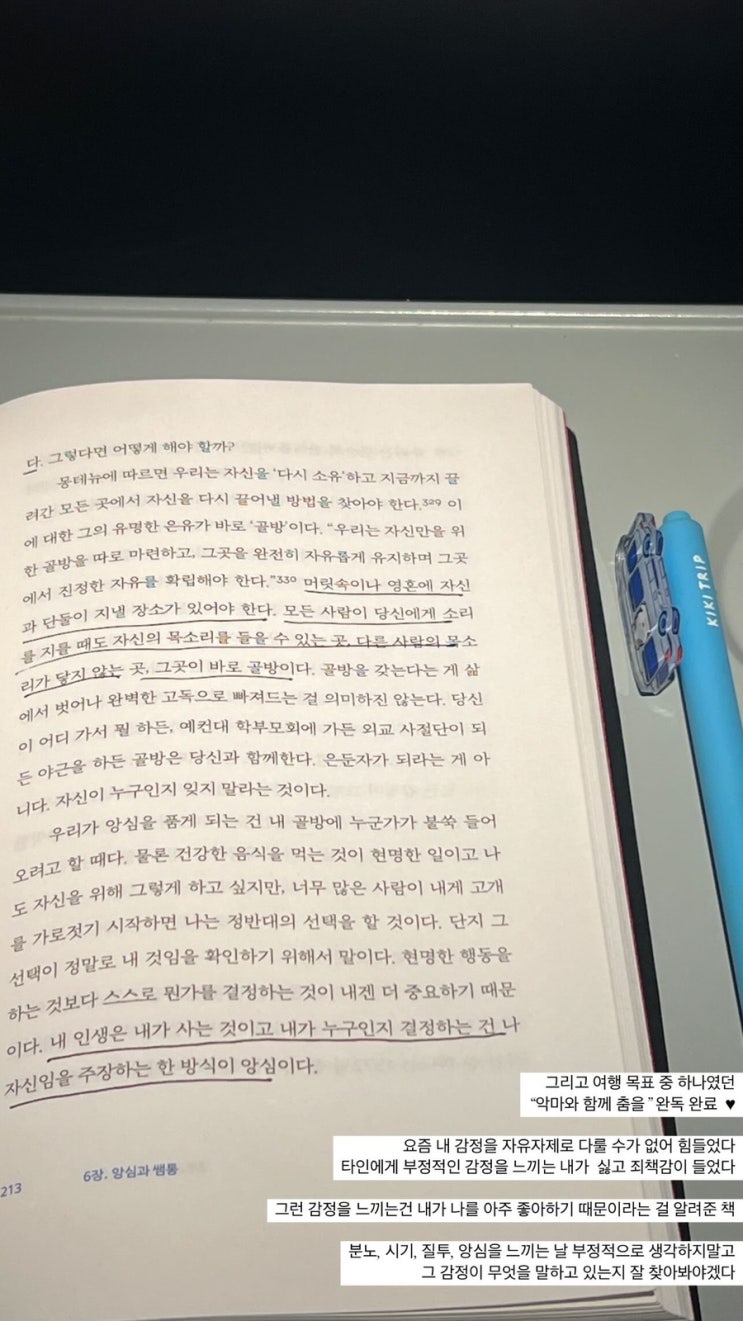 다. 그렇다면 어떻게 해야 할까?
몽테뉴에 따르면 우리는 자신을 ‘다시 소유’하고 지금까지 끌
려간 모든 곳에서 자신을 다시 끌어낼 방법을 찾아야 한다.329 이
에 대한 그의 유명한 은유가 바로 ‘골방’이다. “우리는 자신만을 위
한 골방을 따로 마련하고, 그곳을 완전히 자유롭게 유지하며 그곳
에서 진정한 자유를 확립해야 한다.”330 머릿속이나 영혼에 자신
과 단둘이 지낼 장소가 있어야 한다. 모든 사람이 당신에게 소리
를 지를 때도 자신의 목소리를 들을 수 있는 곳, 다른 사람의 목소
리가 닿지 않는 곳, 그곳이 바로 골방이다. 골방을 갖는다는 게 삶
에서 벗어나 완벽한 고독으로 빠져드는 걸 의미하진 않는다. 당신
이 어디 가서 뭘 하든, 예컨대 학부모회에 가든 외교 사절단이 되
든 야근을 하든 골방은 당신과 함께한다. 은둔자가 되라는 게 아
니다. 자신이 누구인지 잊지 말라는 것이다.
우리가 앙심을 품게 되는 건 내 골방에 누군가가 불쑥 들어
오려고 할 때다. 물론 건강한 음식을 먹는 것이 현명한 일이고 나
도 자신을 위해 그렇게 하고 싶지만, 너무 많은 사람이 내게 고개
를 가로젓기 시작하면 나는 정반대의 선택을 할 것이다. 단지 그
선택이 정말로 내 것임을 확인하기 위해서 말이다. 현명한 행동을
하는 것보다 스스로 뭔가를 결정하는 것이 내겐 더 중요하기 때문
이다. 내 인생은 내가 사는 것이고 내가 누구인지 결정하는 건 나
자신임을 주장하는 한 방식이 앙심이다.
213
6장. 앙심과 쌤통
KIKI TRIP
그리고 여행 목표 중 하나였던
“악마와 함께 춤을” 완독 완료 ♥
요즘 내 감정을 자유자제로 다룰 수가 없어 힘들었다
타인에게 부정적인 감정을 느끼는 내가 싫고 죄책감이 들었다
그런 감정을 느끼는건 내가 나를 아주 좋아하기 때문이라는 걸 알려준 책
분노, 시기, 질투, 앙심을 느끼는 날 부정적으로 생각하지말고
그 감정이 무엇을 말하고 있는지 잘 찾아봐야겠다